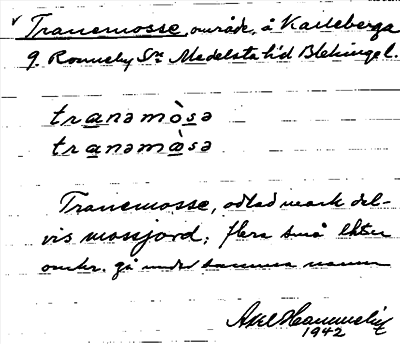 v Tranemosse, område, å Karleberga
g. Ronneby Sn Medelsta hd Blekinge l.
tranəmòsə
tranəmàsə
Tranemosse, odlad mark del-
vis mossjord; flera små lhter
omkr. gå under samma namn
Axel Hammarlid
1942